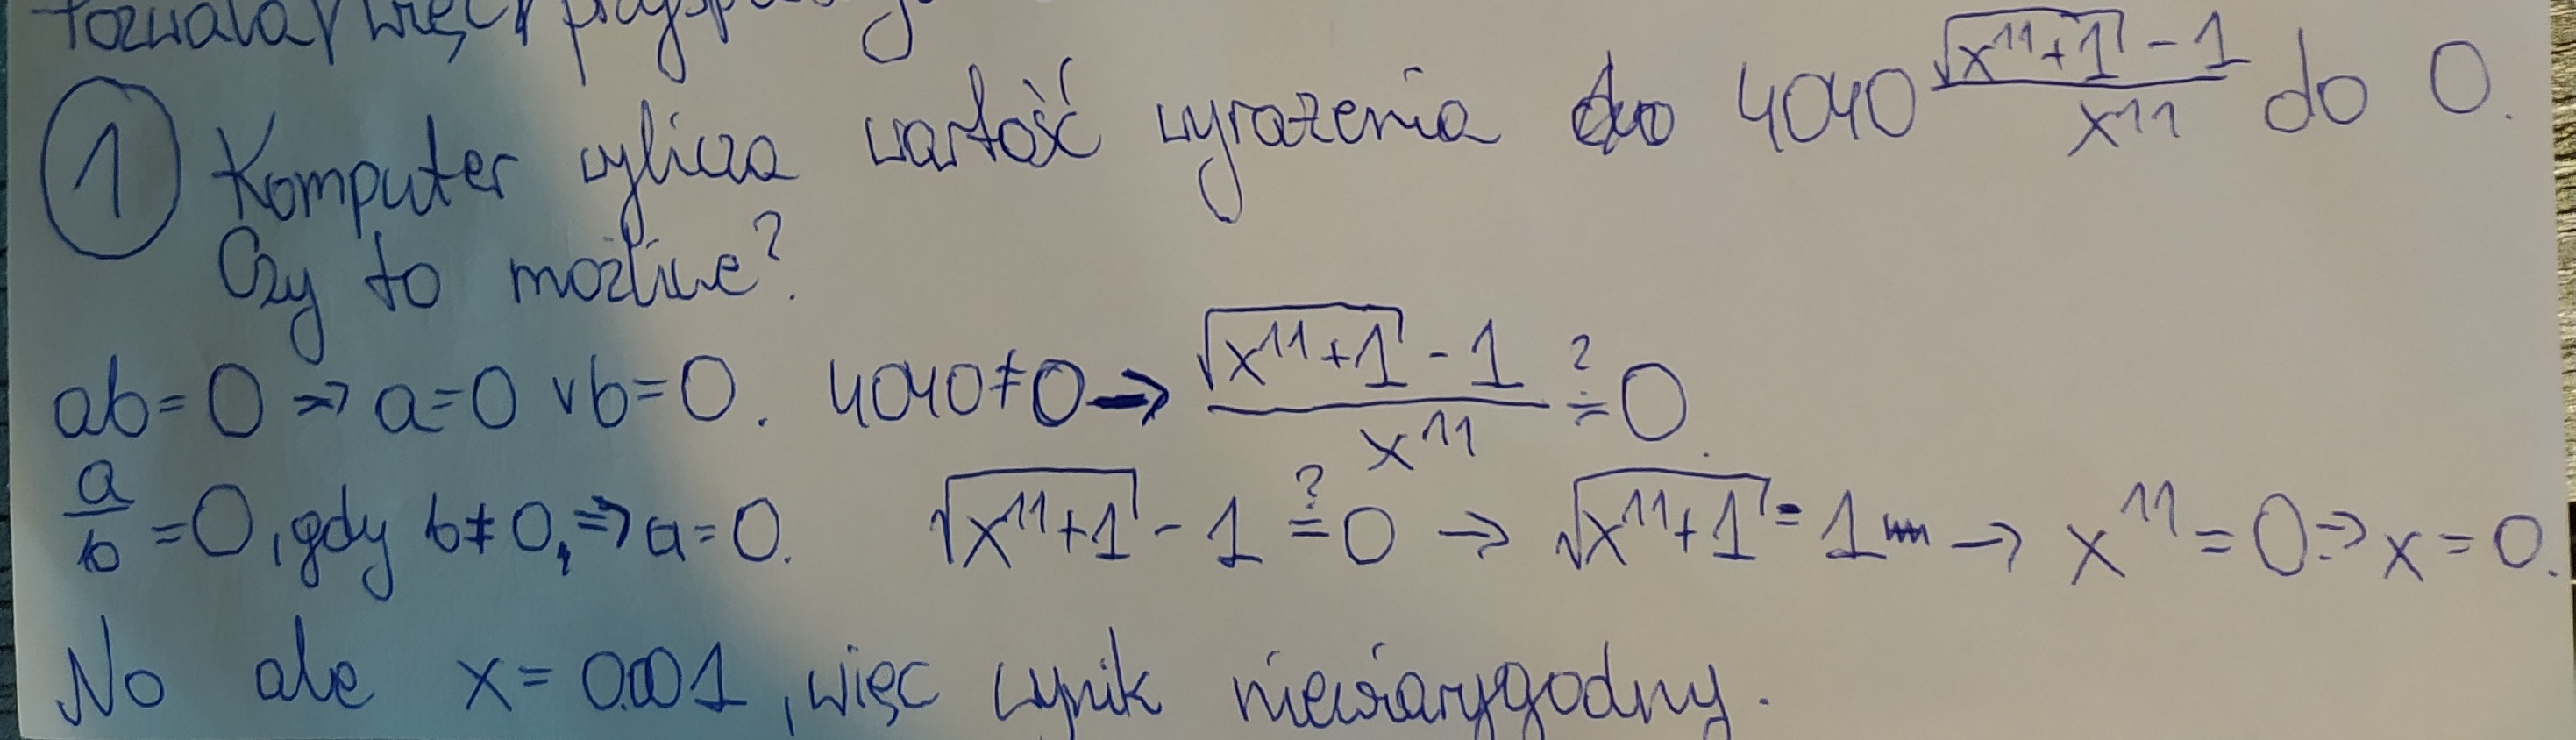 więc
① Komputer wylicza wartość wyrażenia 4040 \frac{\sqrt{x^{11}+1}-1}{x^{11}} do 0.
Czy to możliwe?
ab=0 ⇒ a=0 ∨ b=0. 4040≠0 → \frac{\sqrt{x^{11}+1}-1}{x^{11}} \stackrel{?}{=} 0.
\frac{a}{b}=0, gdy b≠0, ⇒ a=0. \sqrt{x^{11}+1}-1 \stackrel{?}{=} 0 → \sqrt{x^{11}+1}=1 → x^{11}=0 ⇒ x=0.
No ale x=0.001, więc wynik niewiarygodny.